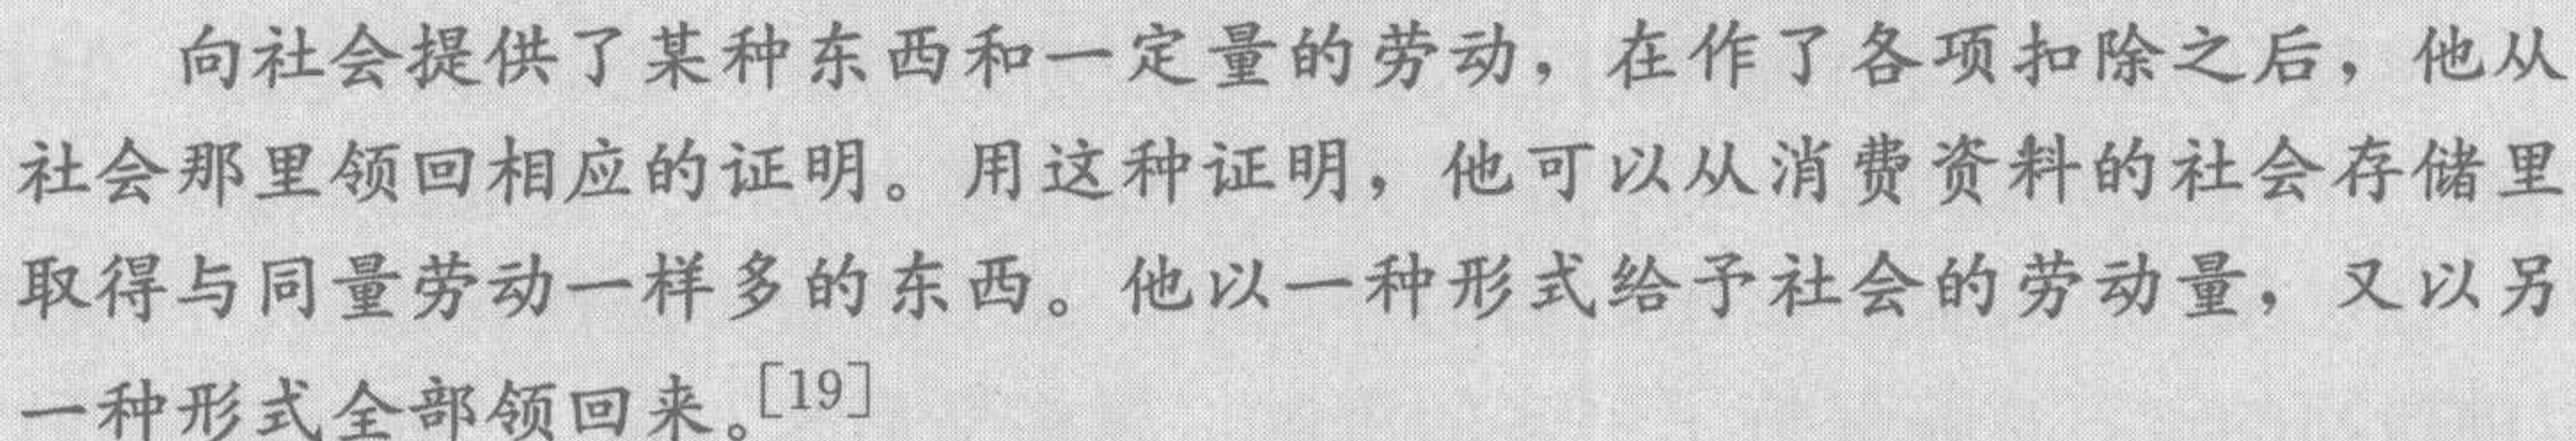 向社会提供了某种东西和一定量的劳动，在作了各项扣除之后，他从
社会那里领回相应的证明。用这种证明，他可以从消费资料的社会存储里
取得与同量劳动一样多的东西。他以一种形式给予社会的劳动量，又以另
一种形式全部领回来。[19]